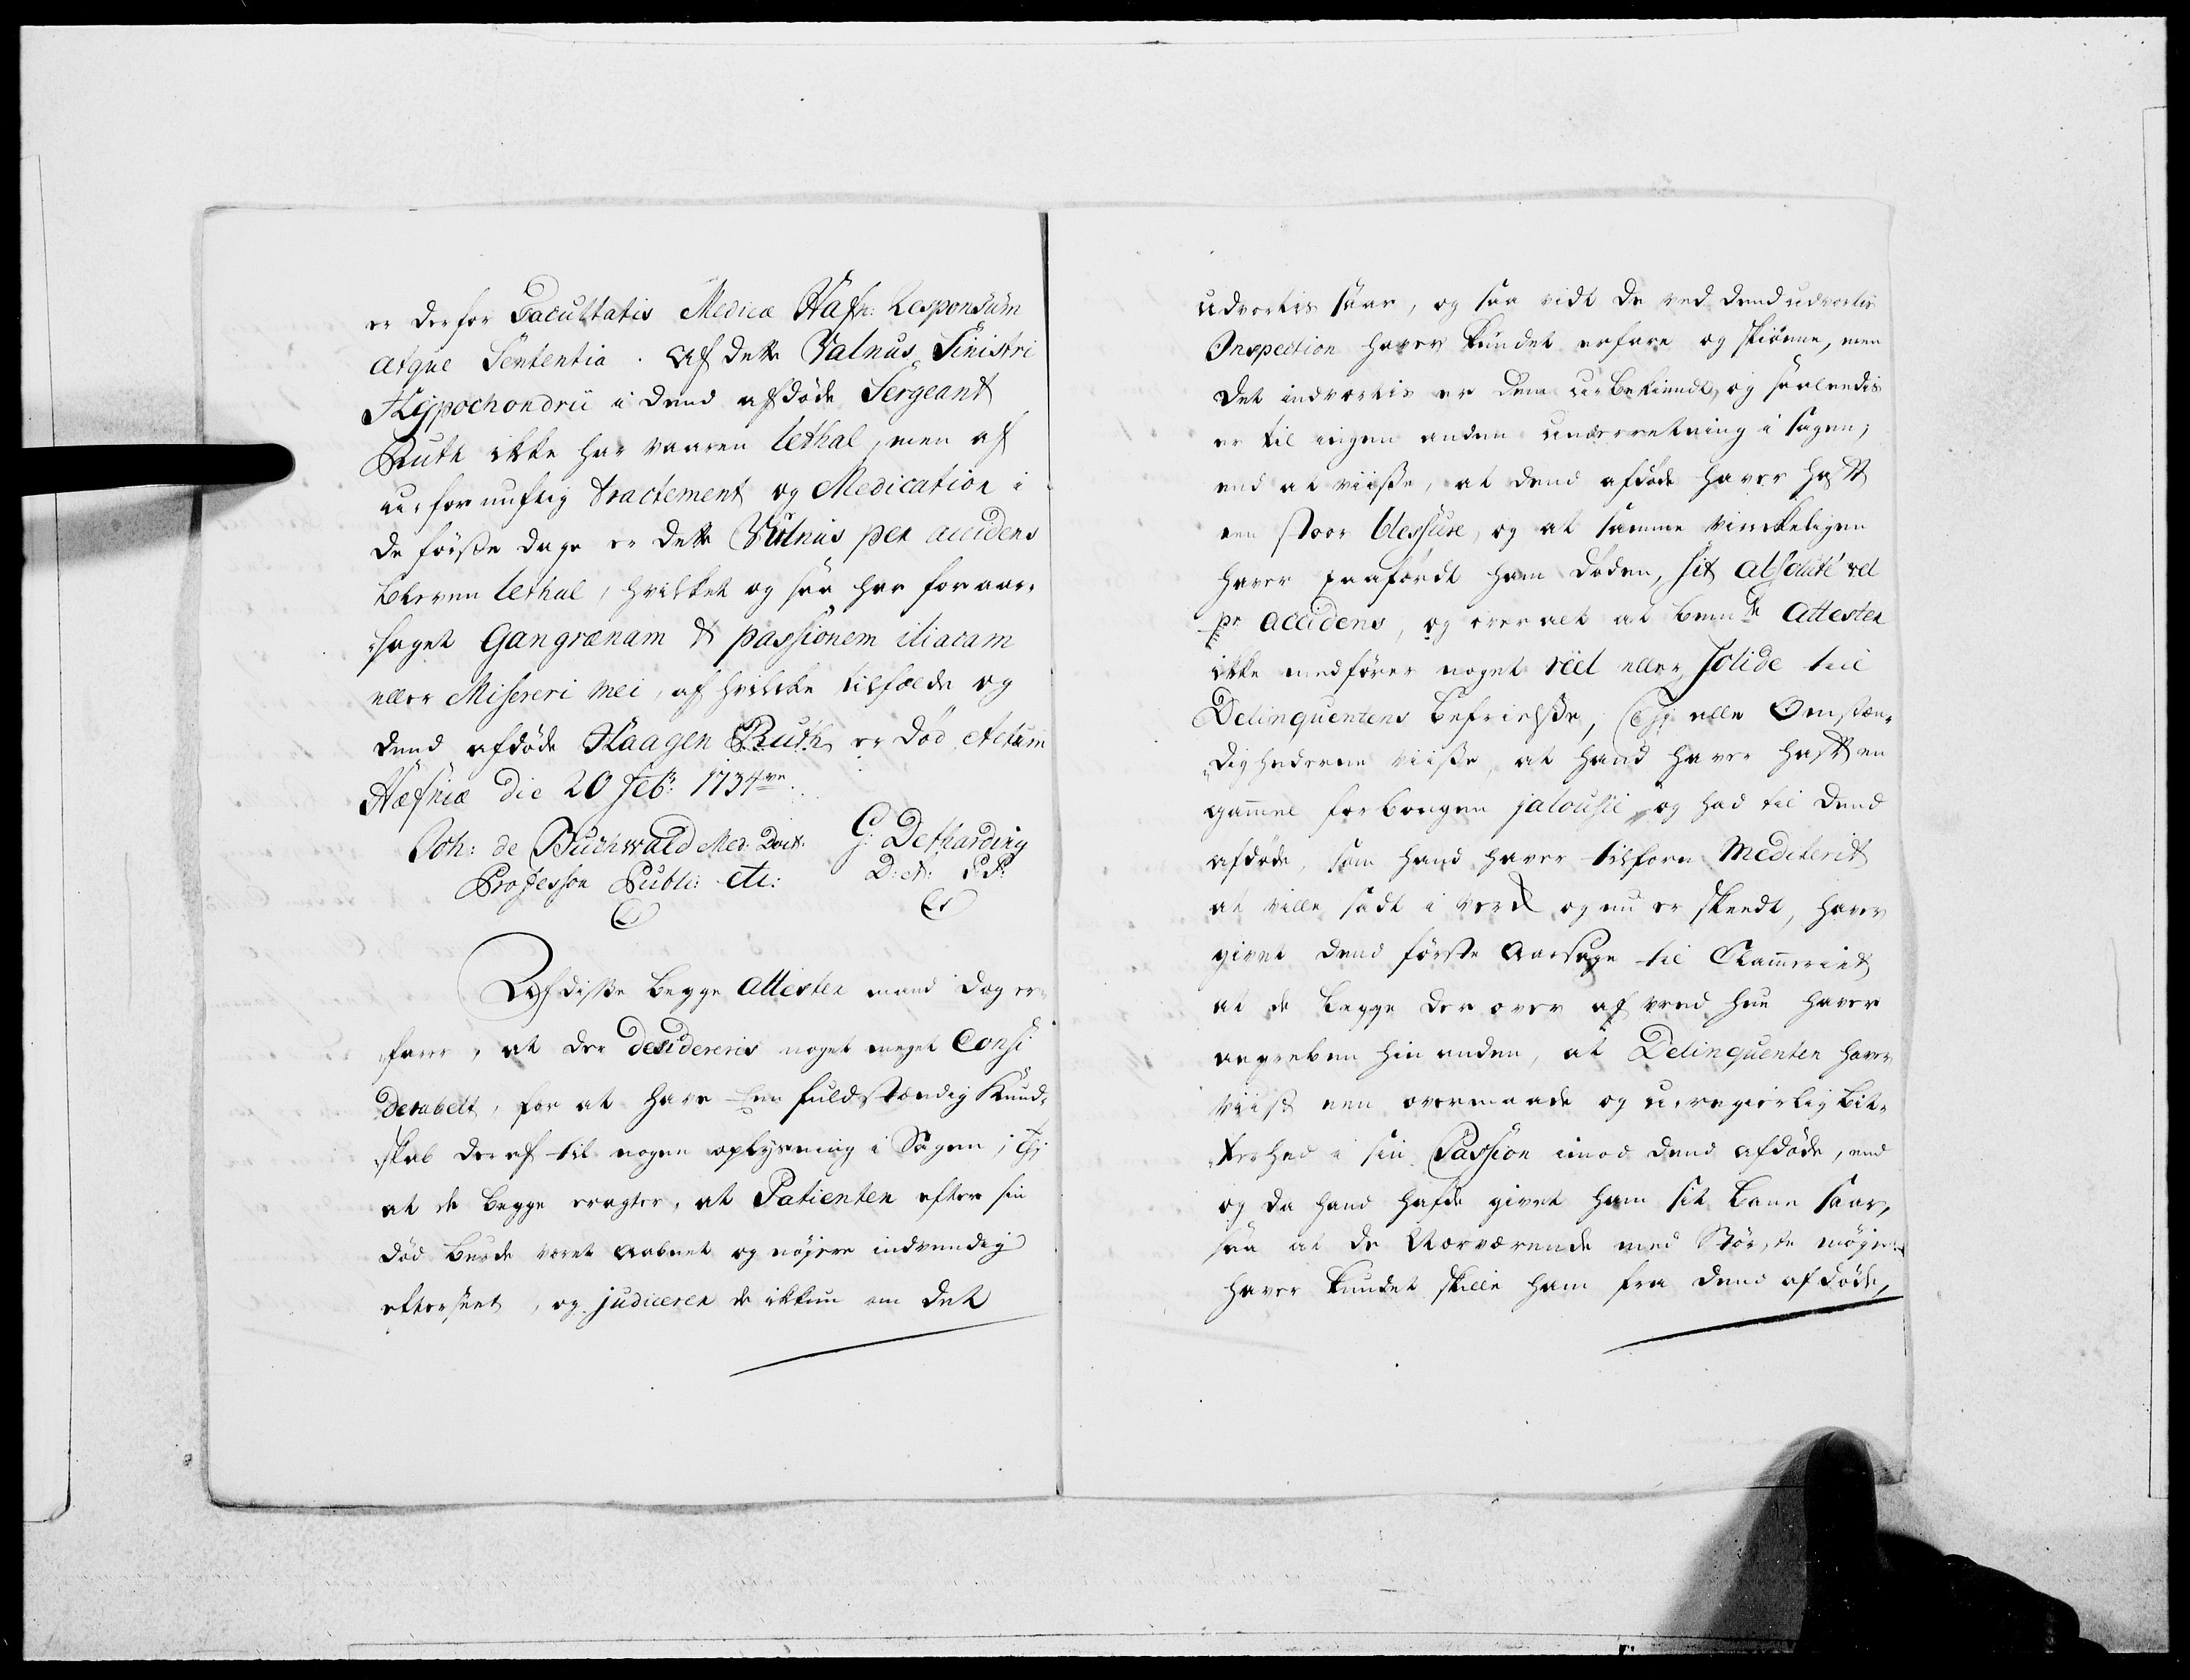 er derfor Facultatis Medicæ Hafn: Responsum
atque Sententia. At dette Valnus Sinistri
Hypochondrii i dend afdöde Sergeant
Ruth ikke har vaaren lethal, men af
u-fornuftig tractement og Medication i
de förste dage er dette Vulnus per accidens
bleven lethal, hvilket og saa har foraar-
saget Gangrænam & passionem iliacam
eller Misereri mei, af hvilcke tilfælde og
dend afdöde Haagen Ruth er död. Actum
Hafniæ die 20 Feb: 1734
Joh: de Buchwald Med. Doct. G. Detharding
Professor Publ: etc: D: P.P.
Af disse begge Attester mand dog er-
farer, at der desidereris noget meget Consi
derabelt, for at have een fuldstændig Kund-
skab deraf til nogen oplysning i Sagen; thj
at de begge eragter, at Patienten efter sin
död burde været aabnet og nöjere indvendig
efterseet, og judicerer de ikkun om det
udvortis saar, og saa vidt de ved dend udvortis
Inspection haver kundet erfare og skiönne, men
det indvortis er dem ubekiendt, og saaledis
er til ingen anden underretning i sagen,
end at viisse, at dend afdöde haver haft
een stoor blessure, og at samme virckeligen
haver paafördt ham döden, sit absoluté vel
pr accidens, og over alt at bemte Attester
ikke medförer noget réel eller solide til
Delinquentens befrielse, Thj alle Omstæn-
dighederne viisse, at hand haver haft en
gammel forborgen jalousie og had til dend
afdöde, som hand haver tilforn Mediterit
at ville sadt i verck og nu er skeedt, haver
givet dend förste Aarsage til Klammeriet
at de begge derover af vred hue haver
angreben hinanden, at Delinquenten haver
viist een overmaade og u-regierlig bit-
terhed i sin Passion imod dend afdöde, end
og da hand hafde givet ham sit bane saar,
saa at de Nærværende med Störste möye
haver kundet skille ham fra dend afdöde,